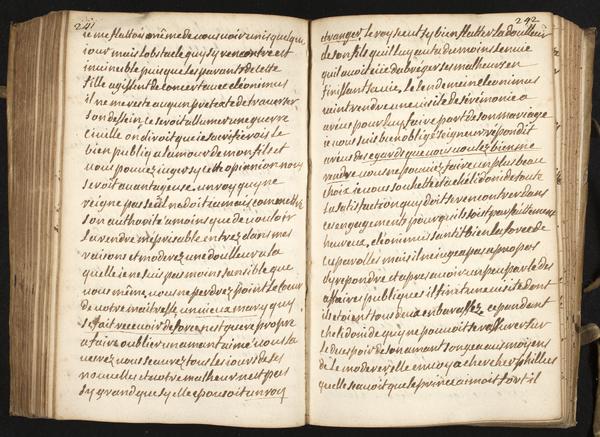 241
ie me flattois mème de vous voir unis quelque
jour mais lobstacle quy sy rencontre est
inuincible puisque les parants de cette
fille agissent de concert auec cleonimus
il ne me reste aucun pretexte de trauerser
son dessin ce seroit allumer une guerre
ciuille on diroit que ie sacrifierois le
bien publiq a lamour de mon fils et
vous pouuez juger sy cette opinion nous
seroit auantageuse un roy quy ne
reigne pas seul ne doit jamais commettre
son authorité a moins que de vouloir
la rendre meprisable entrez dans mes
raisons et moderez une douleur a la
quelle ie ne suis pas moins sensible que
vous même vous ne perdrez point le coeur
de votre maitresse un vieux mary quy
se fait receuoir de force nest guere propre
a faire oublier un amant aimé vous la
verrez vous scaurez tous les jours de ses
nouuelles et votre malheur nest pas
sy grand que sy elle epousoit un roy
242
etranger, le roy crut sy bien flatter la douleur
de son fils quil luy auta du moins lenuie
quil auoit eüe dabreger ses malheurs en
finissant sa uie. le lendemain cleonimus
vint rendre une uisite de ceremonie a
areus pour luy faire part de son mariage
ie vous suis bien obligé seigneur repondit
areus des egards que vous voulez bien me
rendre vous ne pouuiez faire un plus beau
choix ie vous souhette et a chelidonide toute
la satisfaction quy doit se rencontrer dans
ces engagements pour quils soit parfaittement
heureux, cleonimus santit bien la force de
ces parolles mais il ne jugea pas a propos
dy repondre et apres auoir un peu parlé des
affaires publiques il finit une uisite dont
ils etoient tous deux embarassez cependant
chelidonide quy ne pouuoit se rasseurer sur
le desespoir de son amant songea aux moyens
de le moderer elle enuoya chercher philleus
quelle sauoit que le prince aimoit fort il